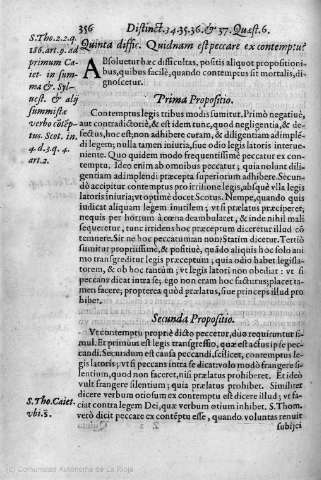 356 Distinct. 34. 35. 36. & 37. Quæst. 6.
S. Tho. 2. 2. q.
186. art. 9. ad
primum Caiet. in summa & Sylvest. & alij
summistæ
verbo cōtēptus. Scot. in
4. d. 3. q. 4.
art. 2.
Quinta diffic. Quidnam est peccare ex contemptu?
ABsoluetur hæc difficultas, positis aliquot propositionibus, quibus facilè, quando contemptus sit mortalis, dignoscetur.
Prima Propositio.
Contemptus legis tribus modis sumitur. Primò negatiuè,
aut contradictoriè, & est idem tunc, quod negligentia, & defectus, hoc est, non adhibere curam, & diligentiam adimplendi legem; nulla tamen iniuria, siue odio legis latoris interueniente. Quo quidem modo frequentissimè peccatur ex contemptu. Ideo enim ab omnibus peccatur, quia nolunt diligentiam adimplendi præcepta superiorum adhibere. Secundò accipitur contemptus pro irrisione legis, absque vlla legis
latoris iniuria; vt optimè docet Scotus. Nempe, quando quis
iudicat aliquam legem inutilem; vt si prælatus præciperet;
nequis per hortum à cœna deambularet, & inde nihil mali
sequeretur, tunc irridens hoc præceptum diceretur illud cōtemnere. Sit ne hoc peccatum an non? Statim dicetur. Tertiò
sumitur propriissimè, & positiuè, quādo aliquis hoc solo animo transgreditur legis præceptum, quia odio habet legislatorem, & ob hoc tantùm; vt legis latori non obediat: vt si
peccans dicat intra se, ego non eram hoc factur9; placet tamen facere, propterea quòd prælatus, siue princeps illud prohibet.
Secunda Propositio.
Vt contemptu propriè dicto peccetur, duo requiruntur simul. Et primum est legis transgressio, quæ est actus ipse peccandi. Secundum est causa peccandi, scilicet, contemptus legis latoris; vt si peccans intra se dicat: volo modò frangere silentium, quod non facerem, nisi prælatus prohiberet. Et ideò
vult frangere silentium; quia prælatus prohibet. Similiter
dicere verbum otiosum ex contemptu est dicere illud; vt faciat contra legem Dei, quæ verbum otium inhibet. S. Thom.
verò dicit peccare ex contēptu esse, quando voluntas renuit
subijci
S. Tho. Caiet.
vbi. s.
(C) Comunidad Autónoma de La Rioja